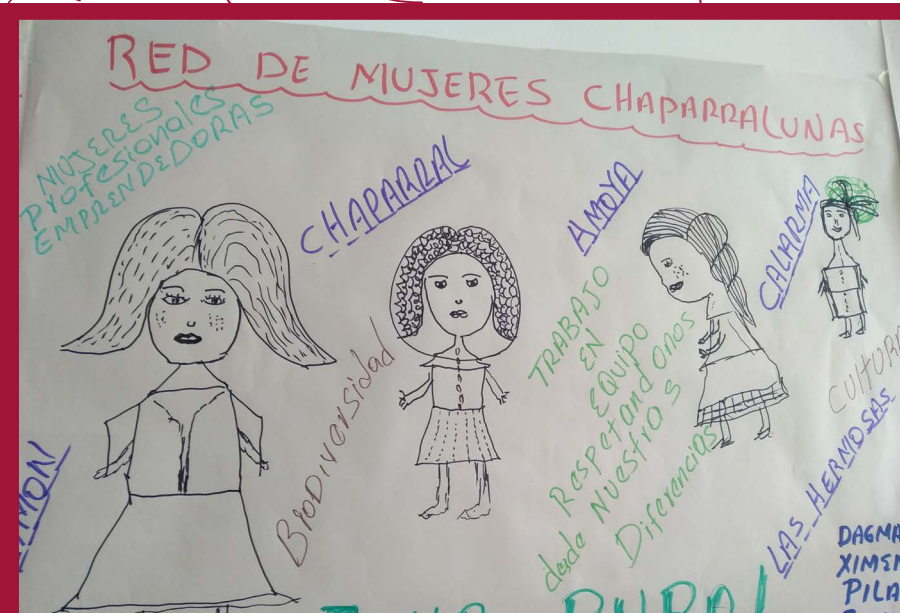 RED DE MUJERES CHAPARRALUNAS
MUJERES
profesionales
EMPRENDEDORAS
CHAPARRAL
AMOYA
CALARMA
BioDiversidad
TRABAJO
EN
EQUIPO
Respetandonos
desde Nuestras
Diferencias
LAS HERMOSAS
RURAL